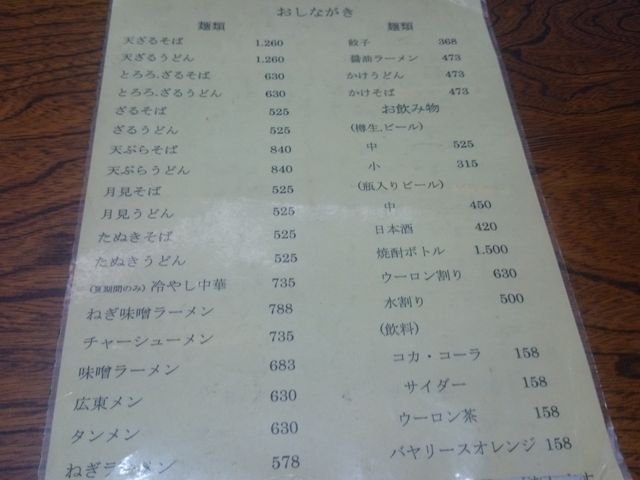 おしながき
麺類
天ざるそば 1.260
天ざるうどん 1.260
とろろ.ざるそば 630
とろろ.ざるうどん 630
ざるそば 525
ざるうどん 525
天ぷらそば 840
天ぷらうどん 840
月見そば 525
月見うどん 525
たぬきそば 525
たぬきうどん 525
(夏期間のみ) 冷やし中華 735
ねぎ味噌ラーメン 788
チャーシューメン 735
味噌ラーメン 683
広東メン 630
タンメン 630
ねぎラーメン 578
麺類
餃子 368
醤油ラーメン 473
かけうどん 473
かけそば 473
お飲み物
(樽生.ビール)
中 525
小 315
(瓶入りビール)
中 450
日本酒 420
焼酎ボトル 1.500
ウーロン割り 630
水割り 500
(飲料)
コカ・コーラ 158
サイダー 158
ウーロン茶 158
バヤリースオレンジ 158